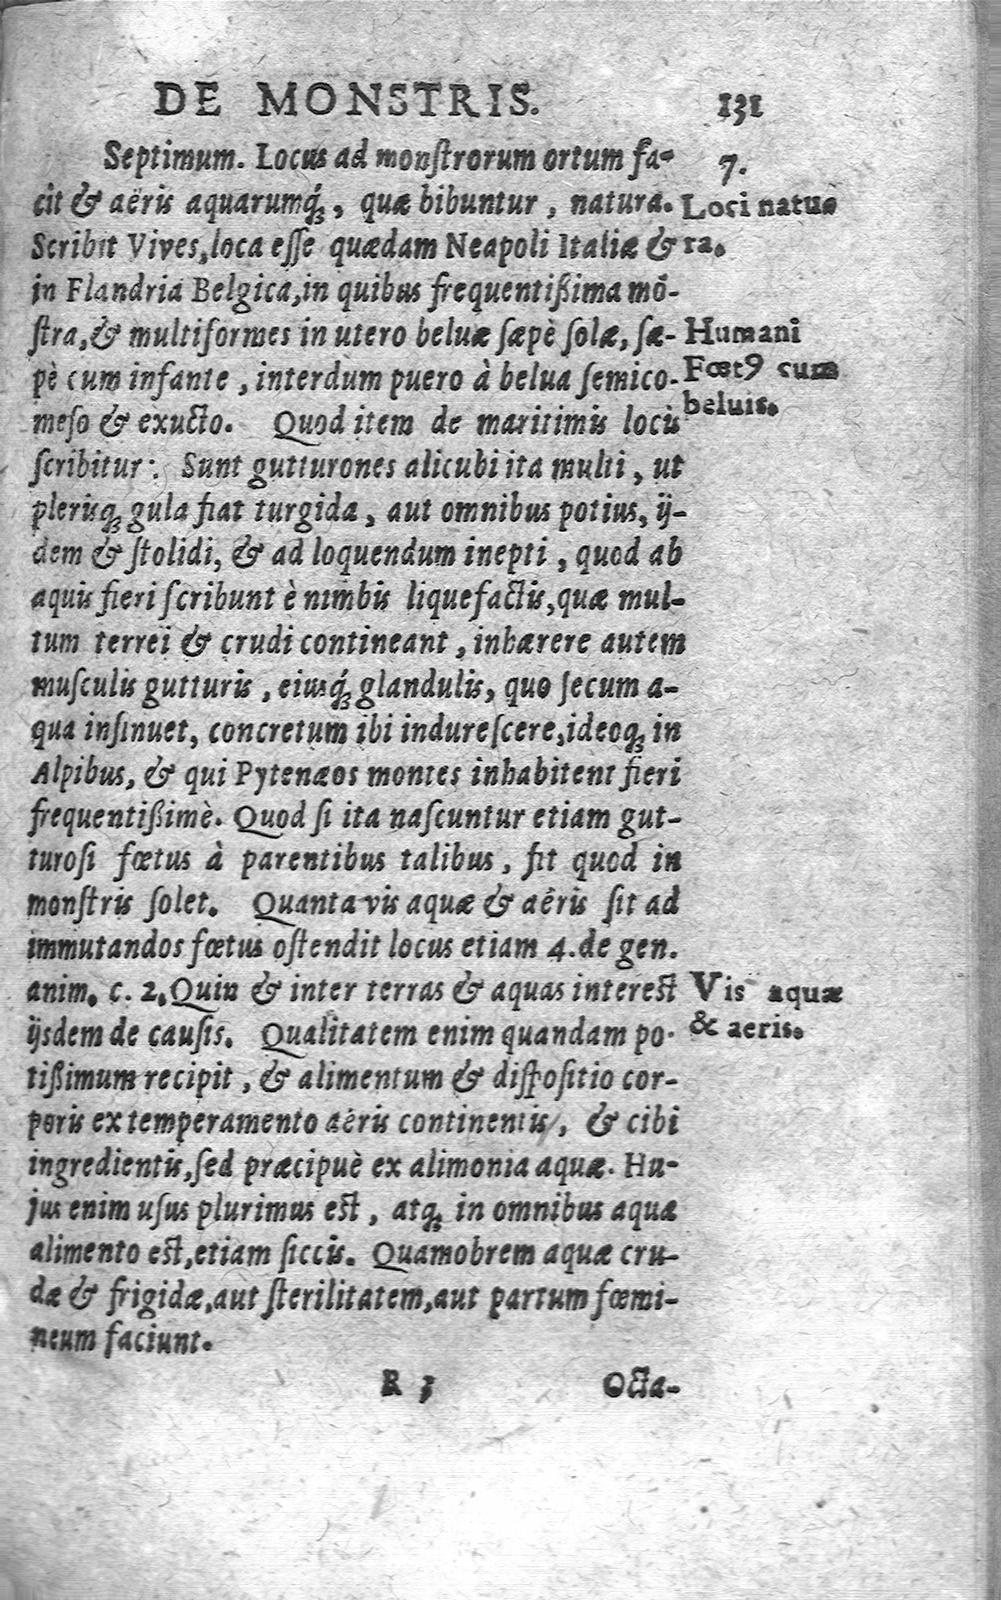 DE MONSTRIS. 131
Septimum. Locus ad monſtrorum ortum fa-
cit & aëris aquarumq́ꝫ, quæ bibuntur, natura.
Scribit Vives, loca eſſe quædam Neapoli Italiæ &
in Flandria Belgica, in quibus frequentißima mõ-
ſtra, & multiformes in utero beluæ ſæpè ſolæ, ſæ-
pè cum infante, interdum puero à belua ſemico-
meſo & exucto. Quod item de maritimis locis
ſcribitur: Sunt gutturones alicubi ita multi, ut
pleriſqꝫ gula fiat turgida, aut omnibus potius, ij-
dem & ſtolidi, & ad loquendum inepti, quod ab
aquis fieri ſcribunt è nimbis liquefactis, quæ mul-
tum terrei & crudi contineant, inhærere autem
muſculis gutturis, eiusq́ꝫ glandulis, quo ſecum a-
qua inſinuet, concretum ibi indureſcere, ideoqꝫ in
Alpibus, & qui Pytenæos montes inhabitent fieri
frequentißimè. Quod ſi ita naſcuntur etiam gut-
turoſi fœtus à parentibus talibus, fit quod in
monſtris ſolet. Quanta vis aquæ & aëris ſit ad
immutandos fœtus oſtendit locus etiam 4. de gen.
anim. c. 2. Quin & inter terras & aquas intereſt
ijsdem de cauſis. Qualitatem enim quandam po-
tißimum recipit, & alimentum & diſpoſitio cor-
poris ex temperamento aëris continentis, & cibi
ingredientis, ſed præcipuè ex alimonia aquæ. Hu-
jus enim uſus plurimus eſt, atqꝫ in omnibus aqua
alimento eſt, etiam ſiccis. Quamobrem aquæ cru-
dæ & frigidæ, aut ſterilitatem, aut partum fœmi-
neum faciunt.
R 3 Octa-
7.
Loci natu-
ra.
Humani
Fœtꝰ cum
beluis.
Vis aquæ
& aeris.